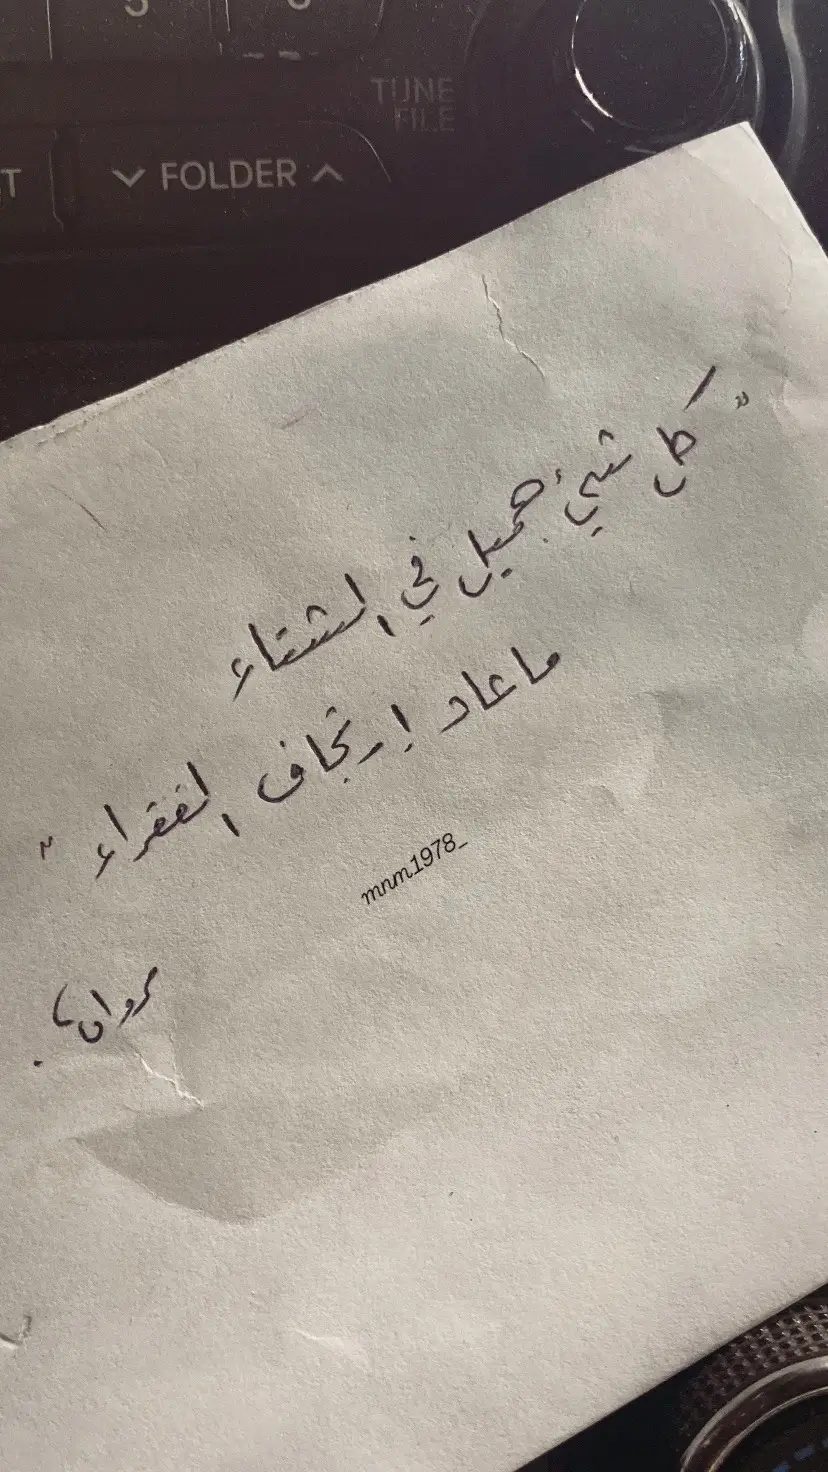 5
TUNE
FILE
T
FOLDER
"كل شيء جميل في الشتاء
ما عاد إرتجاف الفقراء"
mnm1978_